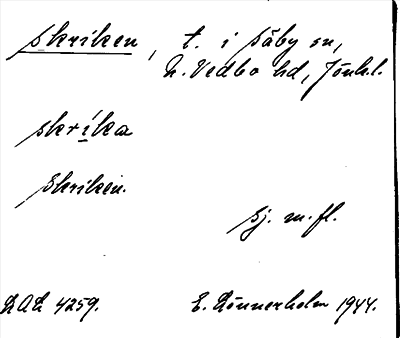 Skriken, t. i Säby sn,
N. Vedbo hd, Jönk.l.
skrika
Skriken.
Sj. m. fl.
DAL 4259. E. Rönnerholm 1944.